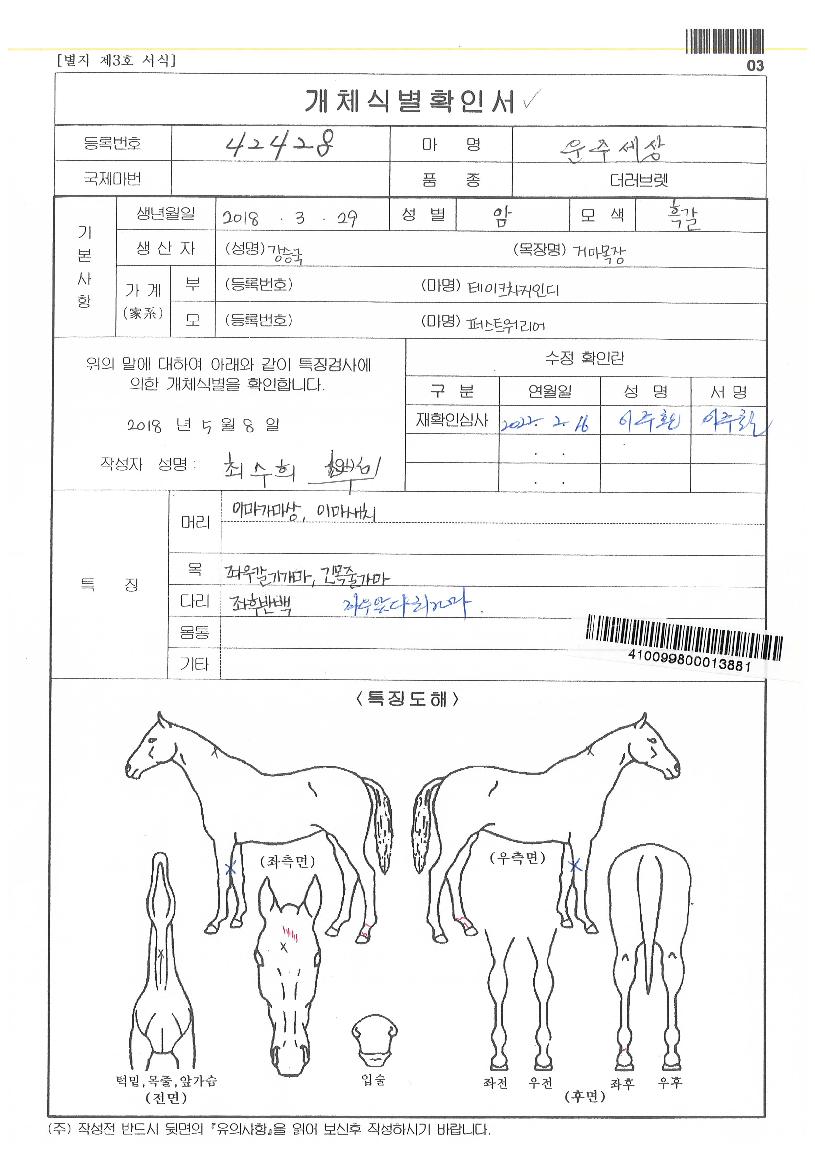 [별지 제3호 서식]
03
개체식별확인서 ✓
등록번호 42428 마 명 운주세상
국제마번 품 종 더러브렛
기본사항
생년월일 2018 . 3 . 29 성 별 암 모 색 흑갈
생 산 자 (성명) 강승국 (목장명) 거마목장
가 계 (家系) 부 (등록번호) (마명) 테이크차지인디
모 (등록번호) (마명) 퍼스트워리어
위의 말에 대하여 아래와 같이 특징검사에
의한 개체식별을 확인합니다.
2018 년 5 월 8 일
작성자 성명 : 최수희
수정 확인란
구 분 연월일 성 명 서 명
재확인심사 2022. 2. 16 이주환 이주환
. .
. .
특 징
머리 이마가마상, 이마새치
목 좌우갈기가마, 긴목줄가마
다리 좌후반백 좌우앞다리가마.
몸통
기타
410099800013881
<특징도해>
(좌측면) (우측면)
턱밑,목줄,앞가슴 입술 좌전 우전 좌후 우후
(전면) (후면)
(주) 작성전 반드시 뒷면의 『유의사항』을 읽어 보신후 작성하시기 바랍니다.